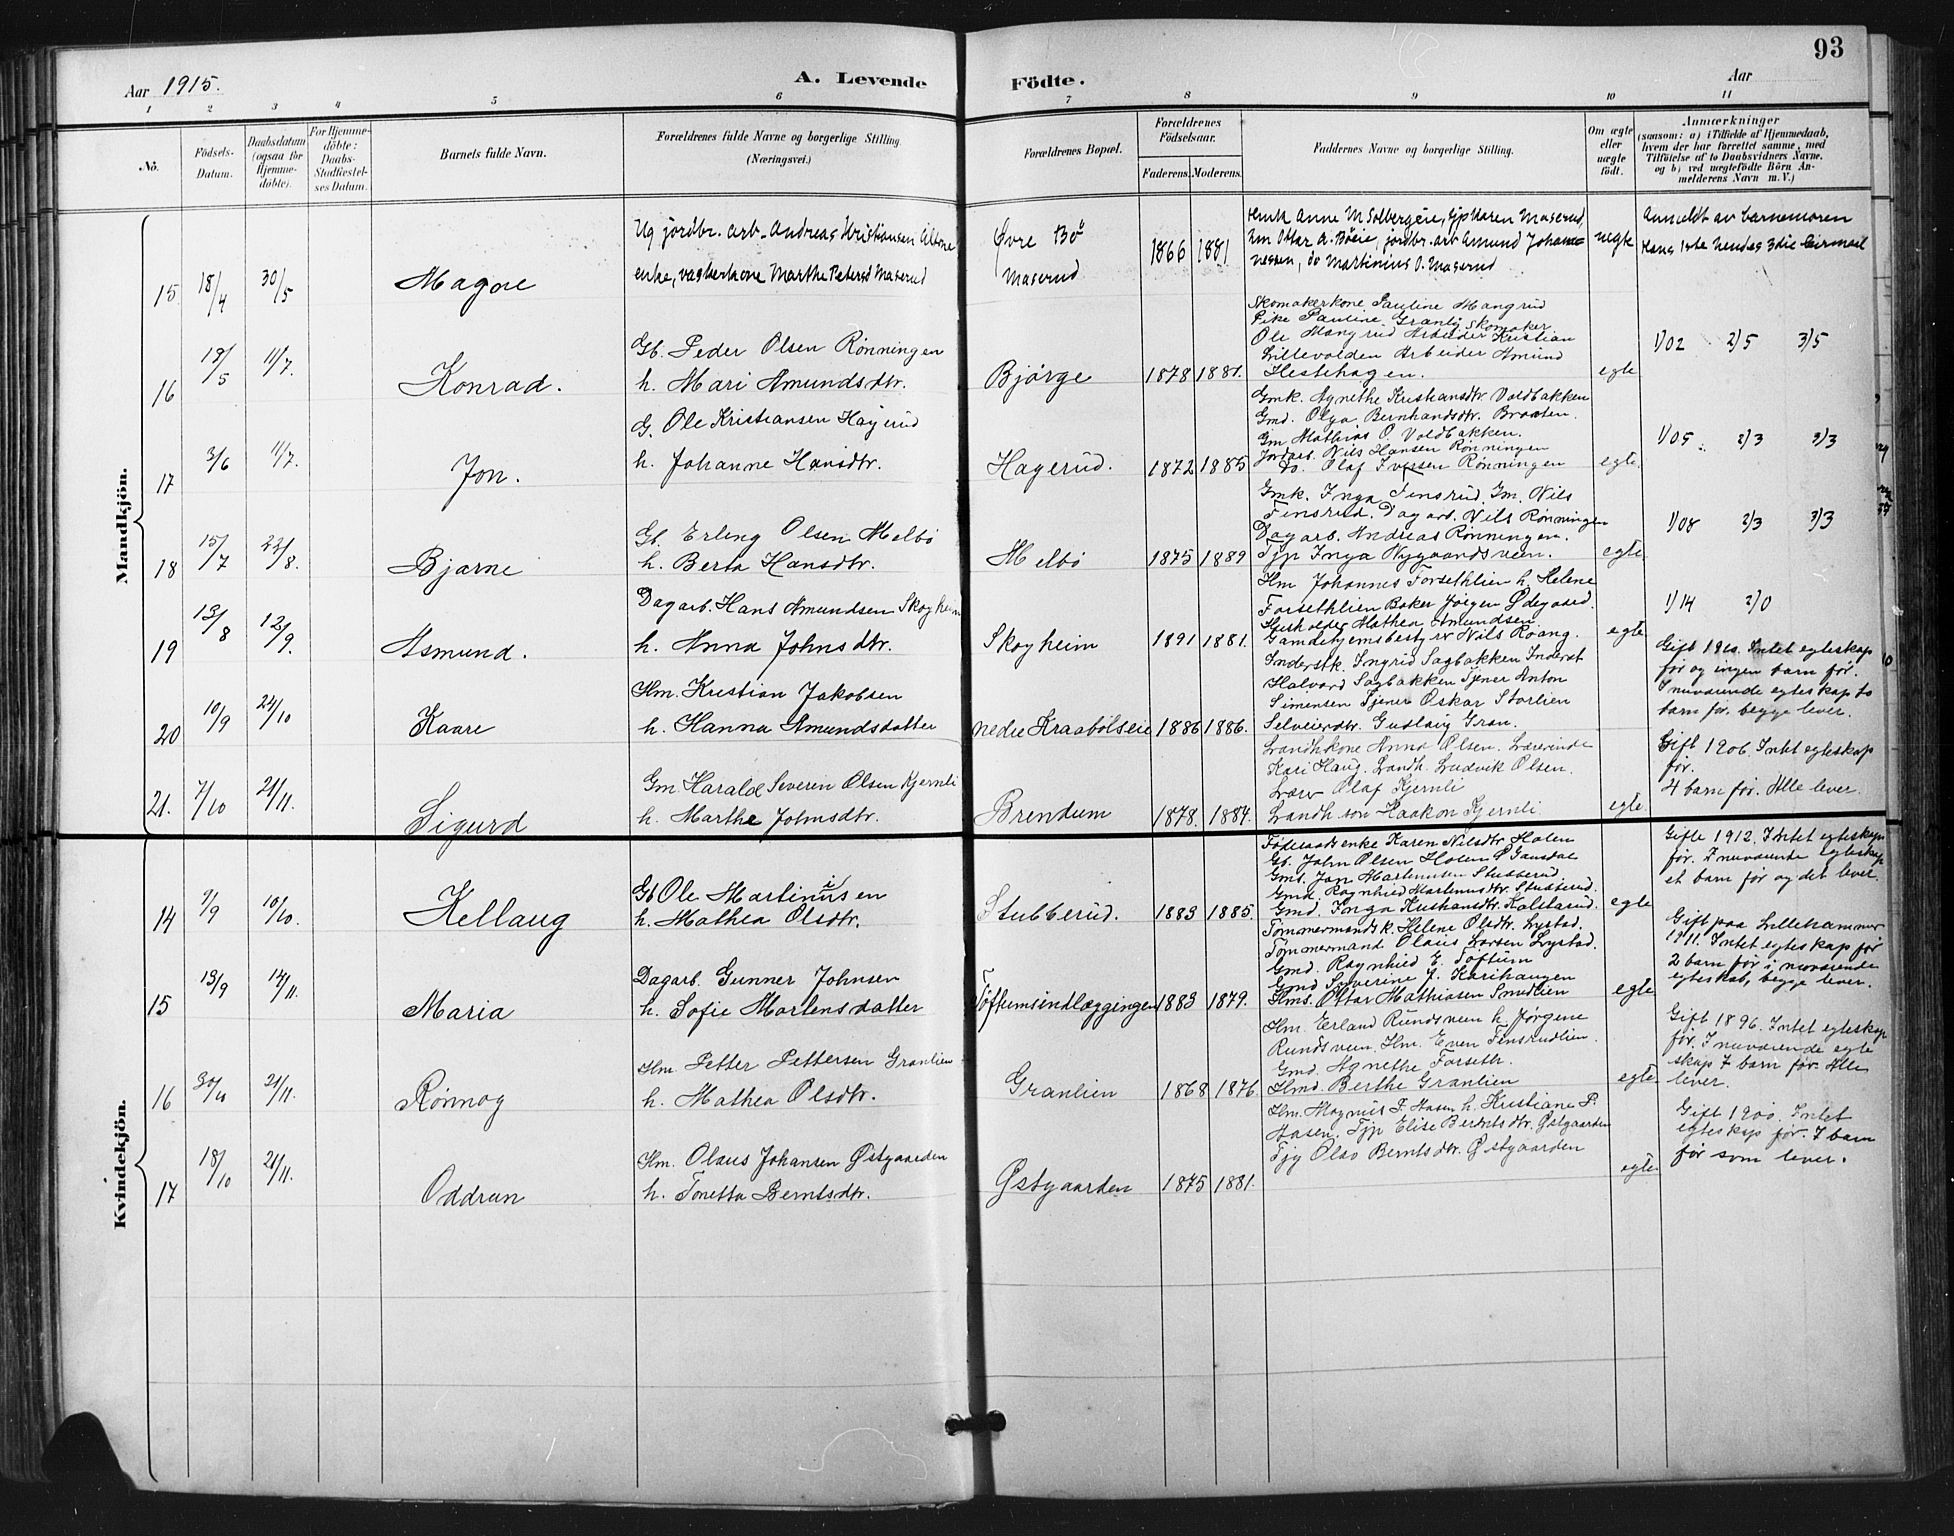 93
Aar 1915.
A. Levende Födte.
Aar
1 2 3 4 5 6 7 8 9 10 11
No.
Födsels-Datum.
Daabsdatum (ogsaa for Hjemme-döbte).
For Hjemme-döbte: Daabs-Stadfæstel-ses Datum.
Barnets fulde Navn.
Forældrenes fulde Navne og borgerlige Stilling (Næringsvei.)
Forældrenes Bopæl.
Forældrenes Födselsaar.
Faderens. Moderens.
Faddernes Navne og borgerlige Stilling.
Om ægte eller uægte födt.
Anmærkninger
(saasom: a) i Tilfælde af Hjemmedaab,
hvem der har forrettet samme, med
Tilföielse af to Daabsvidners Navne,
og b) ved uægtefödte Börn An-
melderens Navn m. V.)
Mandkjön.
15 18/4 30/5 Magne
Ug jordbr. arb. Andreas Kristiansen
enke, vaskerkone Marthe Petersd Maserud
Øvre Bö
Maserud
1866 1881
Gmk Anne M Solbergeie, Tjp Karen Maserud,
Um Ottar A. Böeie, jordbr. arb Amund Johan-
nessen, do Martinius O. Maserud
uegte
Anmeldt av barnemoren
Hans 1ste hendes 3die
16 18/5 11/7. Konrad.
Gb. Peder Olsen Rønningen
h. Mari Amundsdtr.
Bjørge
1878 1881.
Skomakerkone Pauline Mangrud
Pike Pauline Granli, Skomaker
Ole Mangrud Arbeider Kristian
Lillevolden Arbeider Amund
Hestehagen.
egte
1/02 2/5 3/5
17 3/6 11/7. Jon.
G. Ole Kristiansen Hagerud
h. Johanne Hansdtr.
Hagerud.
1872 1885
Gmk. Agnethe Kristiansdtr Voldbakken
Gmd. Olga Bernhardsdtr. Braaten.
Gm Mathias O. Voldbakken.
Jordarb. Nils Hansen Rønningen
Do. Olaf Iversen Rønningen
egte.
1/05 2/3 3/3
18 15/7 22/8. Bjarne
Gb. Erling Olsen Melbö
h. Berta Hansdtr.
Melbö
1875 1889
Gmk. Inga Finsrud. Gm. Nils
Finsrud. Dagarb. Nils Rønningen
Dagarb. Andreas Rønningen.
Tjp Inga Nygaardsveen.
egte
1/08 2/3 3/3
19 13/8 12/9. Asmund.
Dagarb. Hans Amundsen Skogheim
h. Anna Johnsdtr.
Skogheim
1891 1881.
Hm Johannes Forsethlien h. Helene
Forsethlien Baker Jørgen Ødegaard.
Husholder Mathea Amundsen
Gamlehjemsbestyrer Nils Roang.
egte
1/14 2/0
20 10/9 24/10 Kaare
Hm. Kristian Jakobsen
h. Hanna Amundsdatter
nedre Kraabölseie
1886 1886.
Inderstk. Ingrid Sagbakken Inderst
Halvard Sagbakken Tjener Anton
Simensen Tjener Oskar Storlien
Selveierdtr. Gudlaug Gran.
Gift 1910. Intet egteskap
før og ingen barn før.
I nuværende egteskap to
barn før. begge lever.
21. 7/10 21/11. Sigurd
Gm Harald Severin Olsen Kjernli
h. Marthe Johnsdtr.
Brendum
1878. 1884.
Landhkone Anna Olsen. Lærerinde
Kari Haug. Landh. Ludvik Olsen.
Lærer Olaf Kjernli
Landh. søn Haakon Kjernli
egte
Gift 1906. Intet egteskap
før.
4 barn før. Alle lever.
Kvindekjön.
14 9/9 10/10. Kellaug
Gb Ole Martiniusen
h. Mathea Olsdtr.
Stubberud.
1883 1885.
Föderaadsenke Karen Nilsdtr Holen
Gb. John Olsen Holen Ø Gausdal
Gms. Jan Martinusen Stubberud.
Gmd. Ragnhild Martinusdtr. Stubberud.
Gmd. Inga Kristiansdtr. Kalstarud.
egte
Gifte 1912. Intet egteskap
før. I nuværende egteskap
et barn før og det lever.
15 13/9 14/11. Maria
Dagarb. Gunner Johnsen
h. Sofie Mortensdatter
Töftumsindlæggingen
1883 1879.
Tømmermandsk. Helene Olsdtr. Lystad.
Tømmermand Olaus Larsen Lystad.
Gmd. Ragnhild E. Töftum
Gmd Severine J. Karihaugen
Hms. Ottar Mathiasen Smedlien
egte
Gift paa Lillehammer
1911. Intet egteskap før
2 barn før i nuværende
egteskab, begge lever.
16 21/11. Rønnog
Hm Petter Pettersen Granlien
h. Mathea Olsdtr.
Granlien
1868 1876.
Hm. Erland Rundsveen h. Jørgine
Rundsveen. Hm. Even Finsrudlien.
Gmd. Agnethe Forseth.
Hmd. Berthe Granlien
egte
Gift 1896. Intet egteskap
før. I nuværende egte
skap 7 barn før. Alle
lever.
17 18/10 21/11. Oddrun
Hm. Olaus Johansen Østgaarden
h. Tonetta Berntsdtr.
Østgaarden
1875 1881.
Hm. Magnus P. Hasen h. Kristiane P.
Hasen. Tjp Elise Berntsdtr. Østgaarden
Tjg Olav Berntsdtr. Østgaarden
egte
Gift 1900. Intet
egteskap før. 7 barn
før som lever.